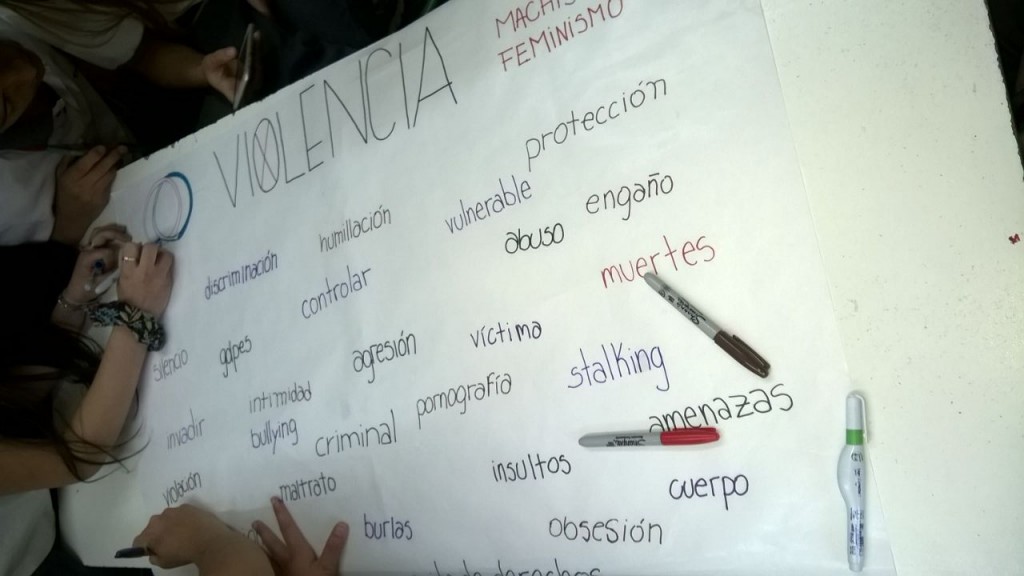 FEMINISMO
VIOLENCIA
protección
vulnerable
engaño
humillación
abuso
discriminación
controlar
muertes
víctima
silencio
golpes
agresión
stalking
intimidad
pornografía
invadir
bullying
criminal
amenazas
insultos
violación
maltrato
cuerpo
burlas
obsesión
derechos
Sharpie
Sharpie